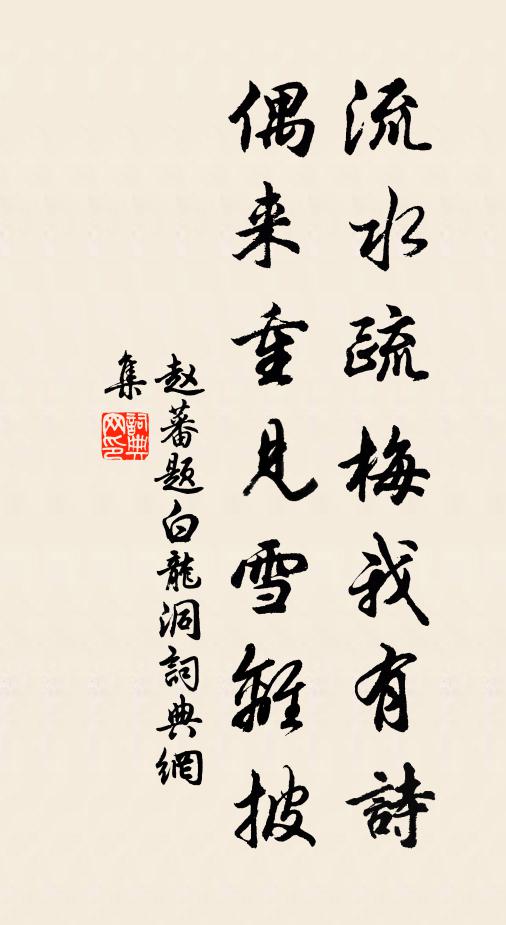 流水疏梅我有詩
偶来重見雪離披
赵蕃题白龍洞詞典網
集
詞典网印